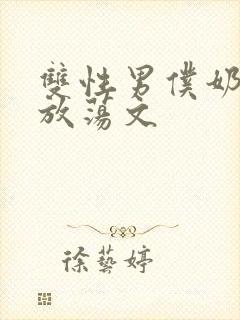 雙性男僕奶
放蕩文
徐藝婷